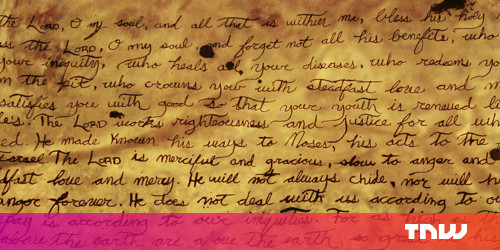 the LORD, O my soul, and all that is within me, bless his holy
ss the LORD, O my soul, and forget not all his benefits, who
your iniquity, who heals all your diseases, who redeems yo
m the pit, who crowns you with steadfast love and m
satisfies you with good so that your youth is renewed
les. The LORD works righteousness and justice for all wh
ed. He made known his ways to Moses, his acts to the
Israel The LORD is merciful and gracious, slow to anger and
dfast love and mercy. He will not always chide, nor will h
anger forever. He does not deal with us according to o
repay us according to our iniquities. For as high as
above the earth are above the earth, so
TNW